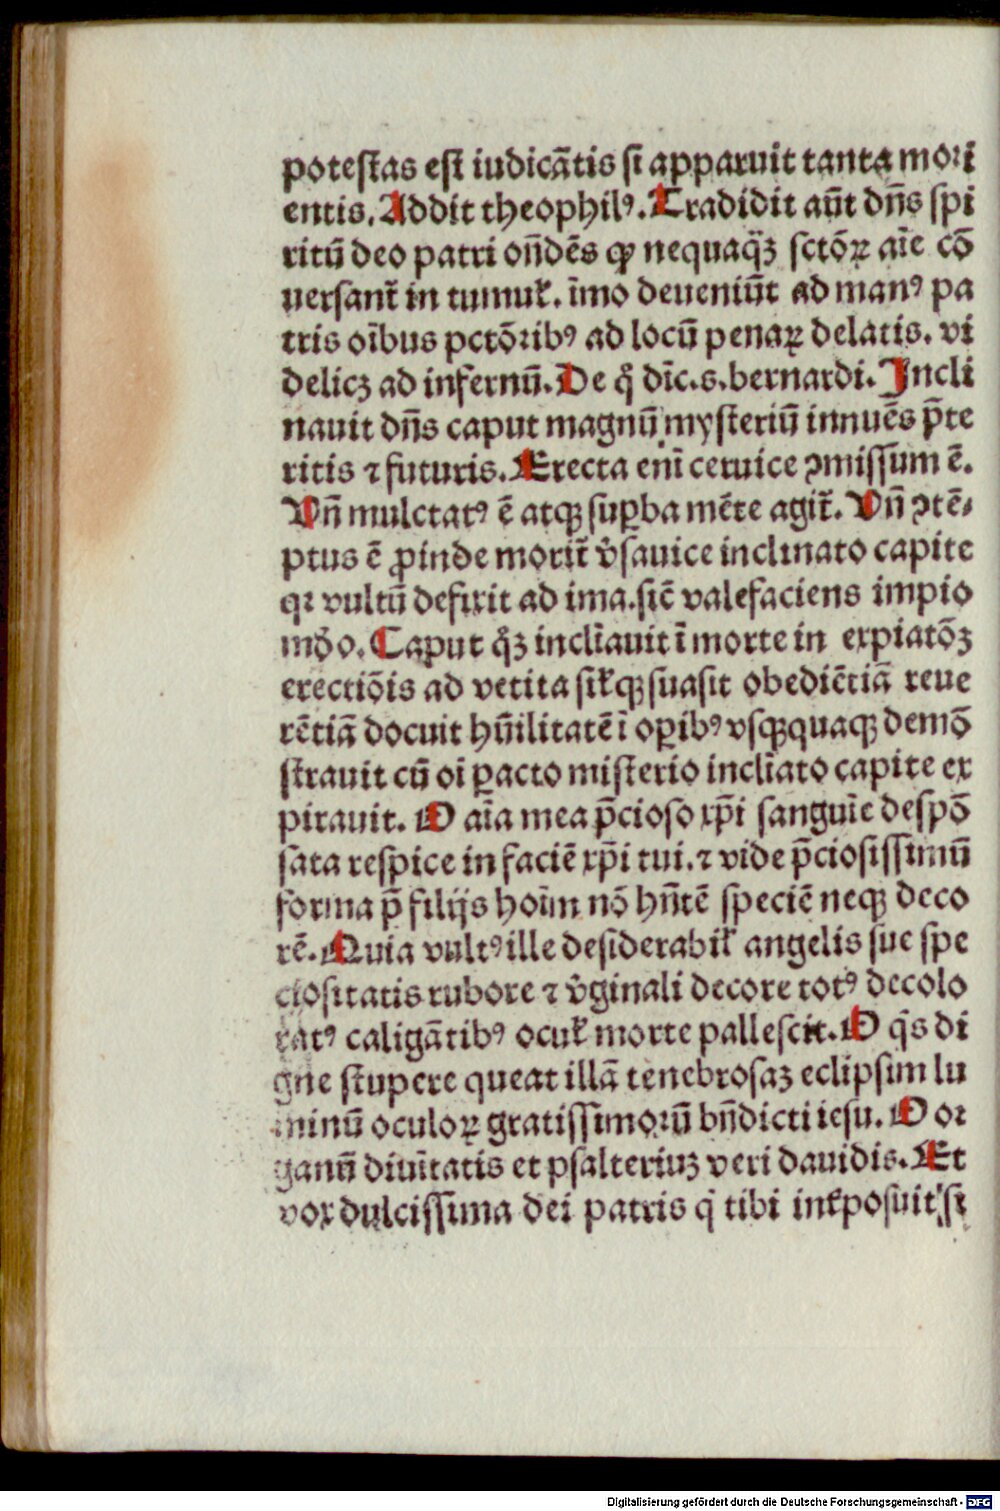 poteſtas eſt iudicãtis ſi apparuit tanta moꝛi
entis. Addit theophilꝰ. Tradidit aũt dñs ſpi
ritũ deo patri oñdẽs ꝙ nequaq̃ꝫ ſctõꝝ aĩe cõ
uerſant̃ in tumuł. ĩmo deueniũt ad manꝰ pa
tris oĩbus pctõꝛibꝰ ad locũ penaꝝ delatis. vi
delicꝫ ad infernũ. De q̊ dĩc.s.bernardi. Incli
nauit dñs caput magnũ myſteriũ innuẽs p̃te
ritis ⁊ futuris. Erecta enĩ ceruice ꝯmiſſum ẽ.
Vñ mulctatꝰ ẽ atqꝫ ſuꝑba mẽte agit̃. Vñ ꝯtẽ⸗
ptus ẽ ꝓinde morit̃ v̾ſauice inclinato capite
qꝛ vultũ defixit ad ima.ſic̃ valefaciens impio
mũdo. Caput q̊ꝫ inclĩauit ĩ morte in expiatõꝫ
erectiõis ad vetita ſiłqꝫ ſuaſit obediẽtiã reue
rẽtiã docuit hũilitatẽ ĩ oꝑibꝰ vſqꝫquaqꝫ demõ
ſtrauit cũ oĩ ꝑacto miſterio inclĩato capite ex
pirauit. O aĩa mea p̃cioſo xp̃i ſanguĩe deſpõ
ſata reſpice in faciẽ xp̃i tui. ⁊ vide p̃cioſiſſimũ
forma p̃ filijs hoĩm nõ hñtẽ ſpeciẽ neqꝫ deco
rẽ. Quia vultꝰ ille deſiderabił angelis ſue ſpe
cioſitatis rubore ⁊ v̾ginali decore totꝰ decolo
ratꝰ caligãtibꝰ ocuł morte palleſcit. O q̃s di
gne ſtupere queat illã tenebroſaꝫ eclipſim lu
minũ oculoꝝ gratiſſimoꝛũ bñdicti ieſu. O oꝛ
ganũ diuĩtatis et pſalteriuꝫ veri dauidis. Et
vox dulciſſima dei patris q̇ tibi inťpoſuit ſi
Digitalisierung gefördert durch die Deutsche Forschungsgemeinschaft - DFG